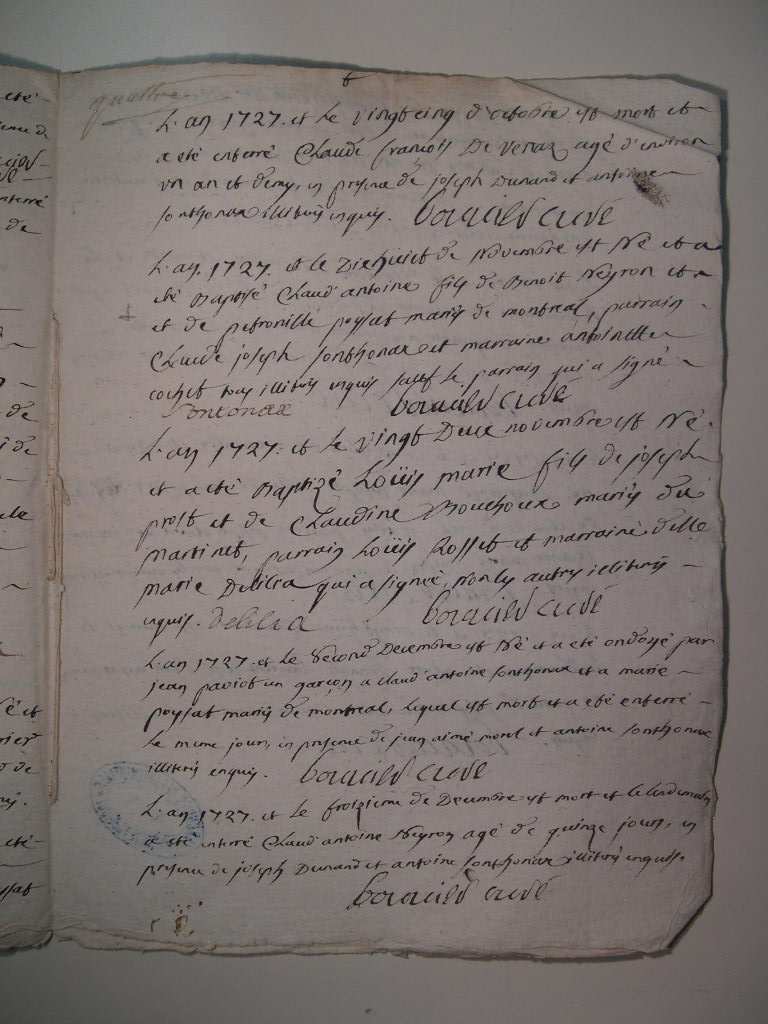 quattre
L'an 1727. et le vingtcinq d'octobre est mort et
a eté enterré Claude francois De venaz agé d'environ
un an et demy, en presence de joseph Dunand et antoine
sonthonax illiterés enquis. Curé
L'an. 1727. et le Dixhuict de Novembre est Né et a
eté Baptisé Claud' antoine fils de Benoit Neyron et
et de petronille poysat mariés de montreal, parrain
Claude joseph sonthonax et marraine antoinette
cochet tous illiterés enquis sauf le parrain qui a signé
Sontonax Curé
L'an 1727. et le vingt Deux novembre est Né
et a eté Baptizé Loüis marie fils de joseph
prost et de Claudine Bouchoux mariés du
Martinet, parrain Loüis Rosset et marraine delle
marie Delilia qui a signée, non les autres illiterés
enquis. delilia Curé
L'an 1727. et le second Decembre est Né et a eté ondoyé par
jean paviot un garçon a claud' antoine sonthonax et a marie
poysat mariés de montreal, lequel est mort et a eté enterré
le meme jour, en presence de jean aimé morel et antoine sonthonax
illiterés enquis. Curé
L'an 1727. et le troizieme de Decembre est mort et le lendemain
a eté enterré Claud' antoine Neyron agé de quinze jours, en
presence de joseph Dunand et antoine sonthonax illiterés enquis.
Curé